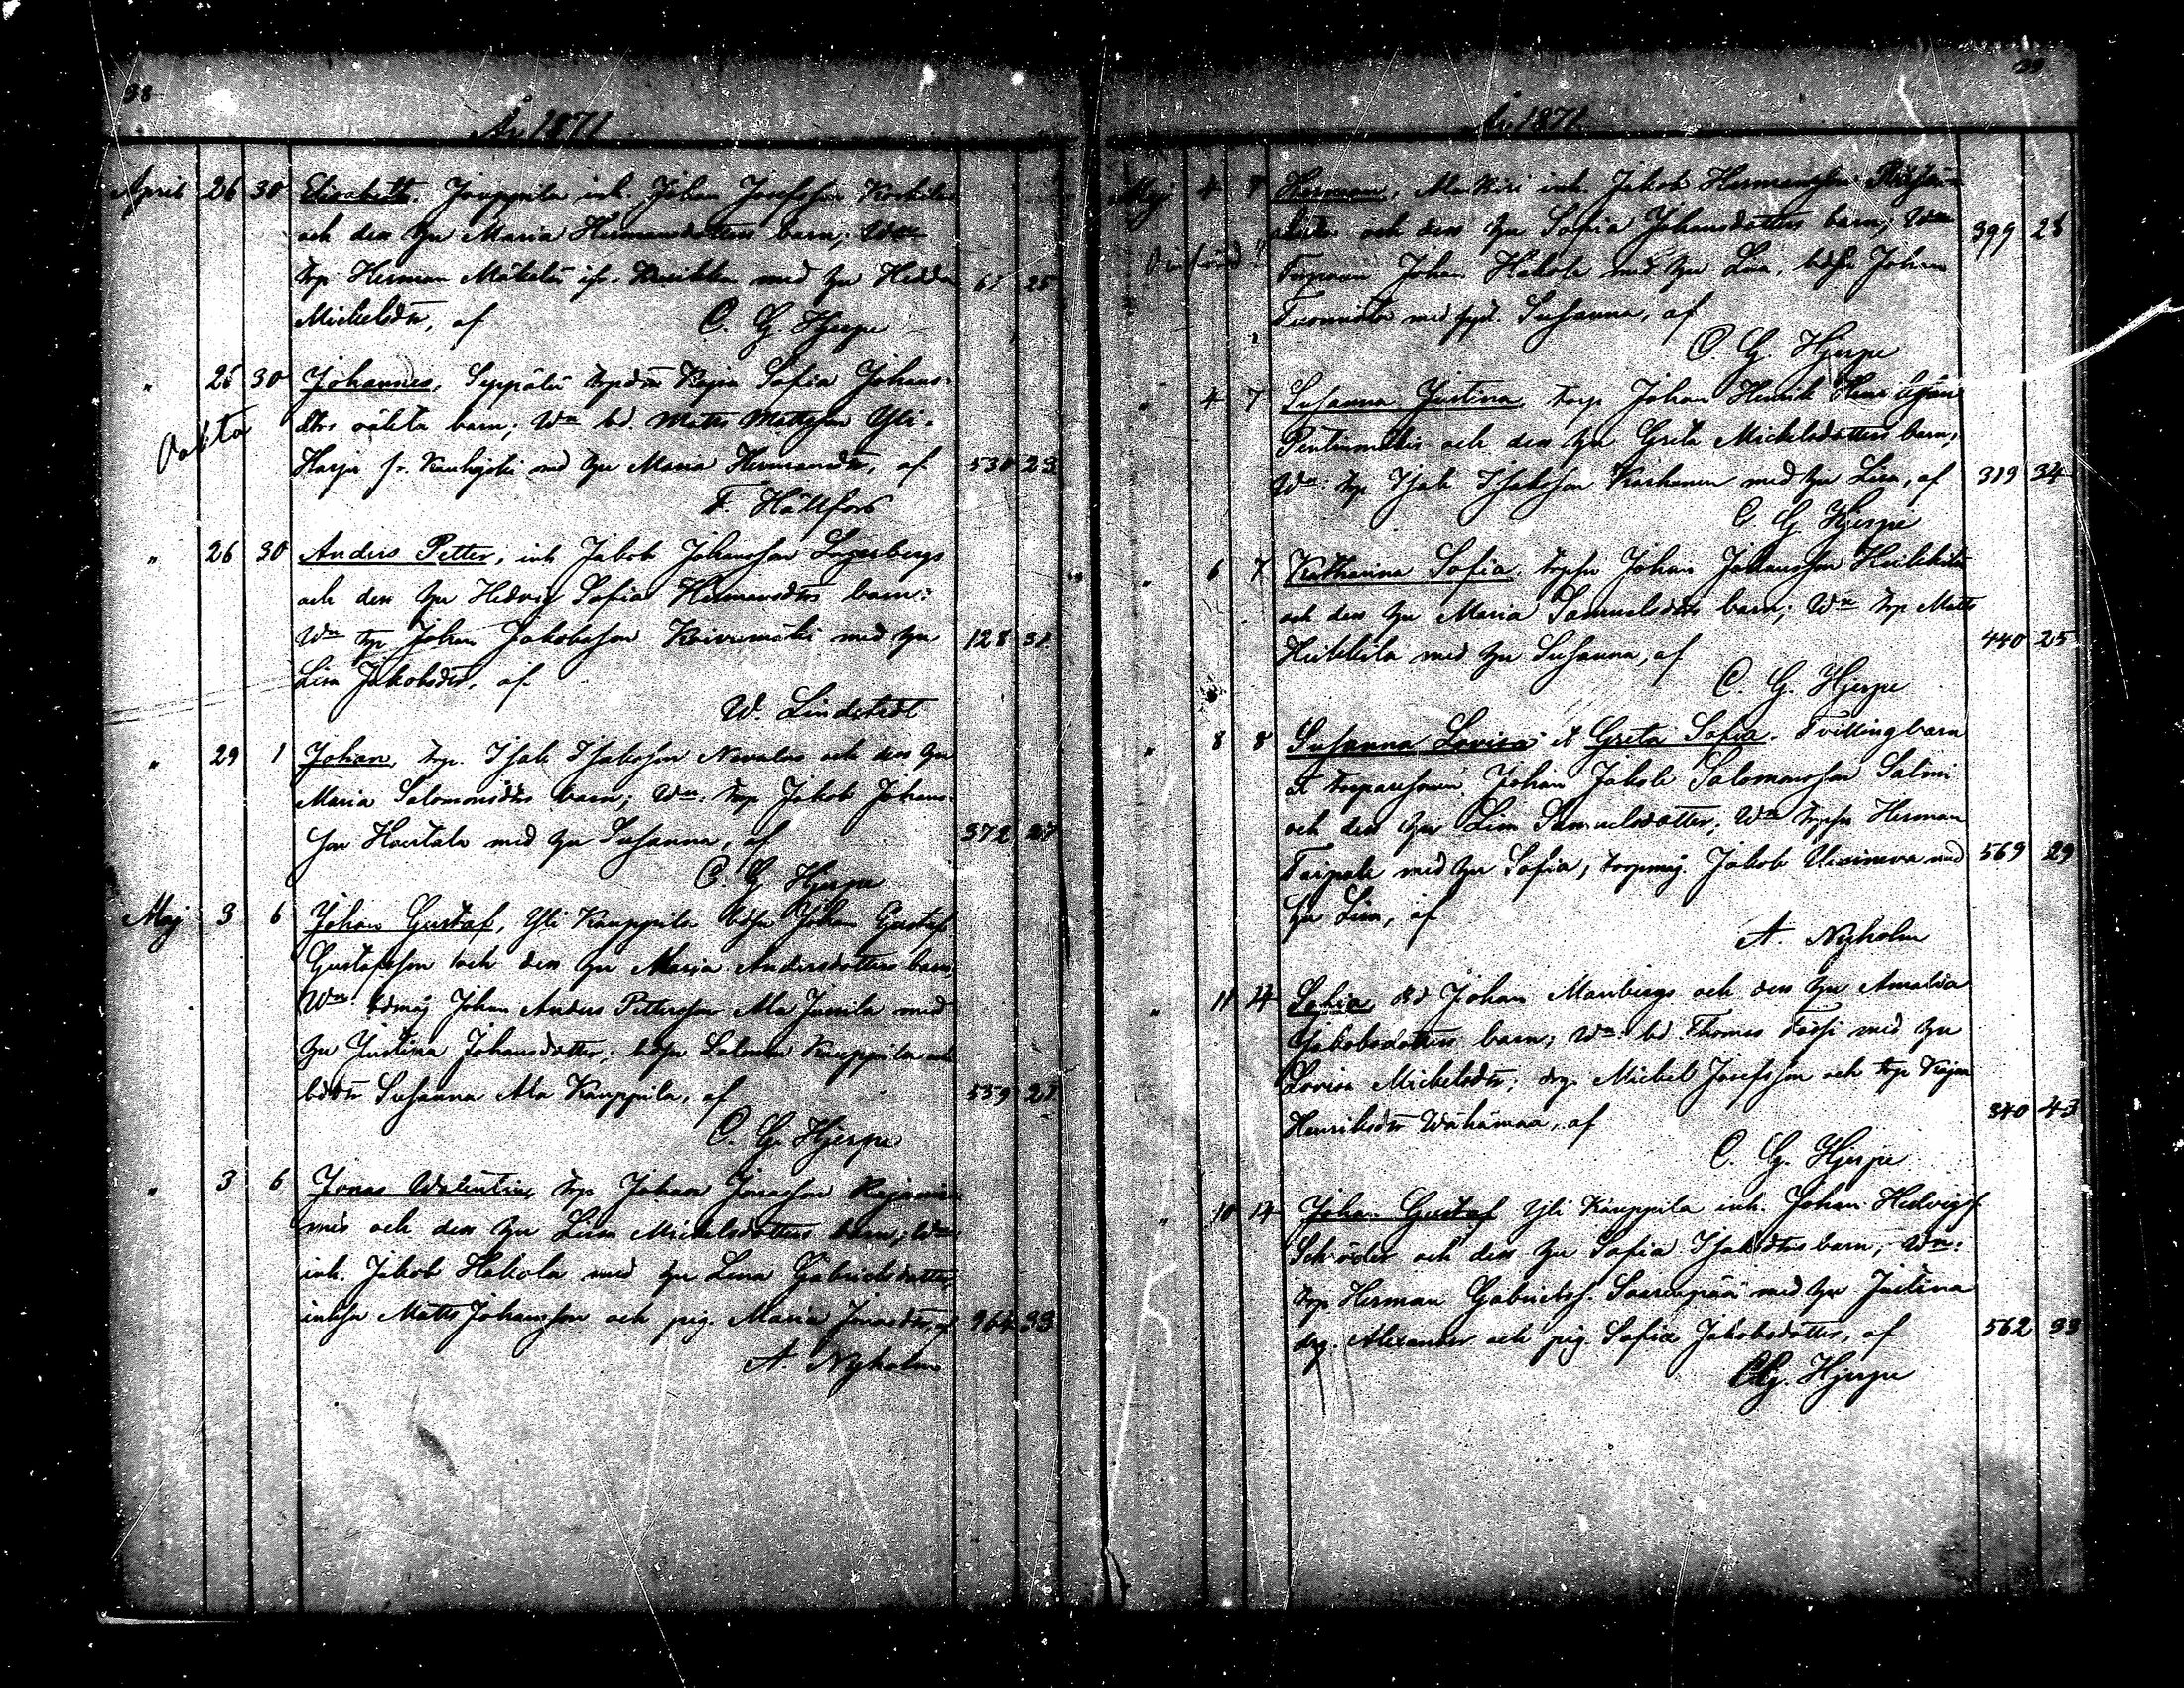 38
År 1871
April 26 30 Elisabeth. Jouppila inh. Johan Josefsson Koskela
och dess hu Maria Hermansdotters barn; Wne
trp Herman Mäkelä ifr. med hu Hedda 61 25
Michelsdr, af C. G. Hjerpe
" 26 30 Johannes, Seppälä trpdr Kajsa Sofia Johans-
Oäkta dtrs oäkta barn; Wne bd. Matts Mattsson Yli-
Harju fr. Kauhajoki med hu Maria Hermansdr, af 530 23
F. Hällfors
" 26 30 Anders Petter, inh Jakob Johansson Lagerbergs
och dess hu Hedvig Sofia Hermansdtrs barn:
Wne trp Johan Jakobsson Koivumäki med hu 128 31
Lisa Jakobsdr, af
W. Lindstedt
" 29 1 Johan, trp. Isak Isaksson Nevalas och dess hu
Maria Salomonsdtrs barn; Wne. trp Jakob Johans-
son Hautala med hu Susanna, af 372 27
C. G. Hjerpe
Maj 3 6 Johan Gustaf, Yli Kauppila bdsn Johan Gustaf
Gustafsson och dess hu Maria Andersdotters barn,
Wne bdmåg Johan Anders Pettersson Ala Jussila med
hu Justina Johansdotter; bdsn Salomon Kauppila och
bddtr Susanna Ala Kauppila, af 559 27
C. G. Hjerpe
" 3 6 Jonas Walentin, trp Johan Jonasson Rajanie-
mis och dess hu Lisa Michelsdotters barn; Wne
inh. Jakob Hakola med hu Lena Gabrielsdotter,
inhsn Matts Johansson och pig. Maria Jonasdr, af 964 33
A. Nyholm
39
År 1871.
Maj 4 7 Herman, Ala Kiri inh. Jakob Hermansson
och dess hu Sofia Johansdotters barn; Wne 399 28
Torparen Johan Hakola med hu Lisa, bdsn Johan
Tuomisto med syst. Susanna, af
C. G. Hjerpe
" 4 7 Susanna Justina, torp Johan Henrik
Pentinmäkis och dess hu Greta Michelsdotters barn,
Wne: trp Isak Isaksson Karhunen med hu Lisa, af 319 34
C G Hjerpe
" 6 7 Katharina Sofia. trpsn Johan Johansson Heikkilä
och dess hu Maria Samuelsdtrs barn; Wne trp Matts
Heikkilä med hu Susanna, af 440 25
C. G. Hjerpe
" 8 8 Susanna Lovisa et Greta Sofia. Tvillingbarn
af torparesonen Johan Jakob Salomonsson Salmi
och dess hu Lisa Samuelsdotter; Wne trpsn Herman
Taipale med hu Sofia, torpmåg. Jakob Uusineva med 569 29
hu Lisa, af
A. Nyholm
" 11 14 Sofia, bd Johan Marbergs och dess hu Amalia
Jakobsdotters barn; Wne: bd Thomas Fossi med hu
Lovisa Michelsdtr; drg. Michel Josefsson och trp Kajsa
Henriksdtr Wähämaa, af 340 43
C. G. Hjerpe
" 10 14 Johan Gustaf Yli Kauppila inh. Johan Hedvigs.
Schröder och dess hu Sofia Isaksdtrs barn; Wne:
trp Herman Gabrielss. Saarenpää med hu Justina
drg. Alexander och pig. Sofia Jakobsdotter, af 562 33
CG. Hjerpe